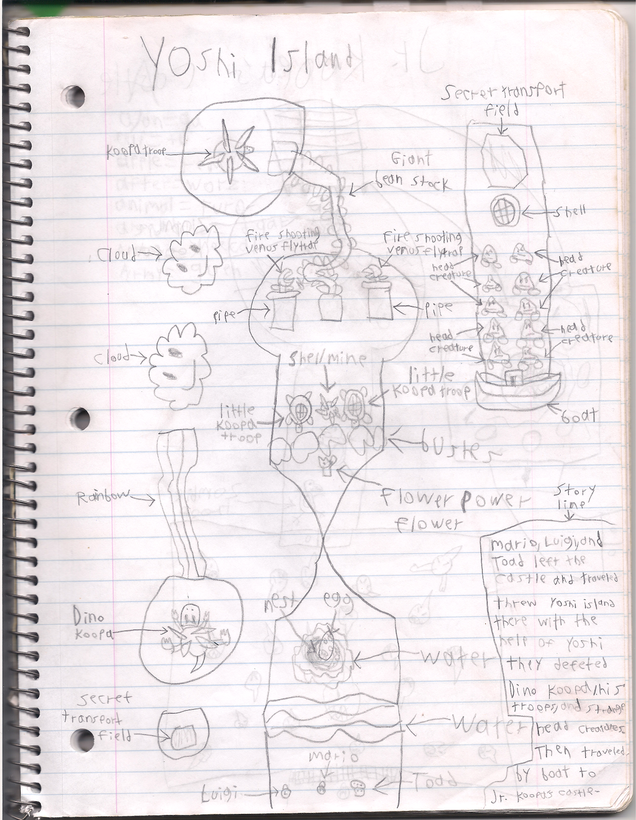 Yoshi Island
Secret transport
field
Koopa troop
Giant
bean stock
shell
Cloud
fire shooting
venus flytrap
Fire shooting
venus flytrap
head
creature
head
creature
pipe
pipe
head
creature
head
creature
Cloud
Shell mine
little
Koopa troop
little
koopa
troop
boat
bushes
Flower power
flower
Rainbow
Story
line
Mario, Luigi, and
Toad left the
castle and traveled
threw Yoshi island
there with the
help of Yoshi
they defeted
Dino Koopa, his
troops, and strange
head creatures
Then traveled
by boat to
Jr. Koopas castle-
nest egg
Dino
Koopa
water
secret
transport
field
water
mario
Luigi
Toad